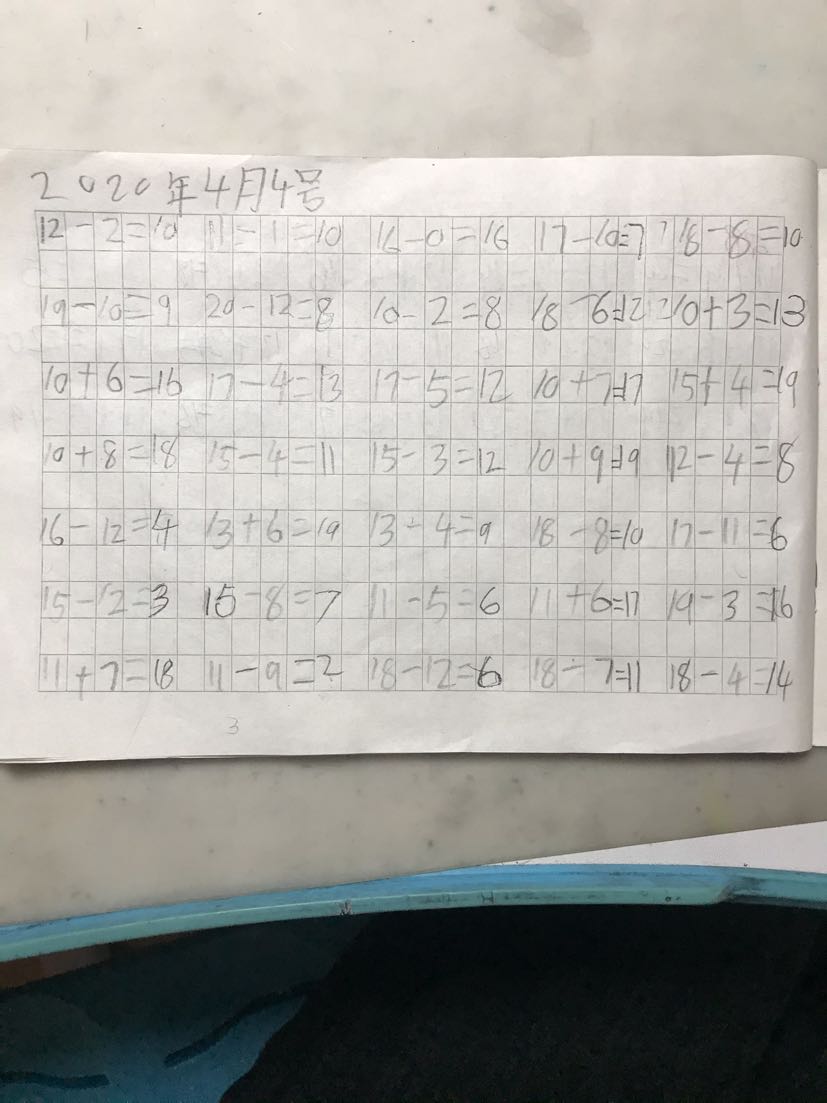 2020年4月4号
12-2=10 11-1=10 16-0=16 17-10=7 18-8=10
19-10=9 20-12=8 10-2=8 18-6=12 10+3=13
10+6=16 17-4=13 17-5=12 10+7=17 15+4=19
10+8=18 15-4=11 15-3=12 10+9=19 12-4=8
16-12=4 13+6=19 13-4=9 18-8=10 17-11=6
15-12=3 15-8=7 11-5=6 11+6=17 19-3=16
11+7=18 11-9=2 18-12=6 18-7=11 18-4=14
3